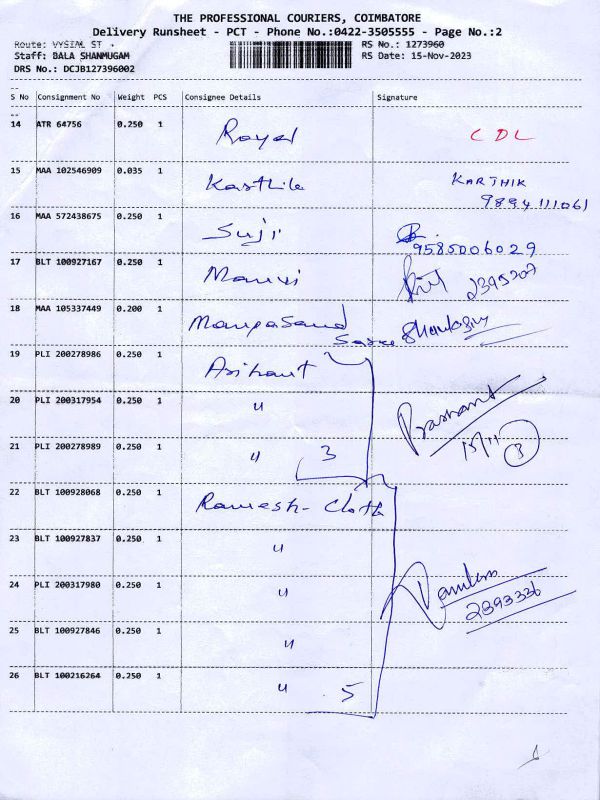 THE PROFESSIONAL COURIERS, COIMBATORE
Delivery Runsheet - PCT - Phone No.:0422-3505555 - Page No.:2
Route: VYSIAL ST
RS No.: 1273960
Staff: BALA SHANMUGAM
RS Date: 15-Nov-2023
DRS No.: DCJB127396002
S No Consignment No Weight PCS Consignee Details Signature
14 ATR 64756 0.250 1 Royal CDL
15 MAA 102546909 0.035 1 Karthik KARTHIK
9894111061
16 MAA 572438675 0.250 1 Suji
9585006029
17 BLT 100927167 0.250 1 2395207
18 MAA 105337449 0.200 1
19 PLI 200278986 0.250 1 Arihant
20 PLI 200317954 0.250 1 " Prashant
21 PLI 200278989 0.250 1 " 3 15/11 3
22 BLT 100928068 0.250 1 Ramesh- Cloth
23 BLT 100927837 0.250 1 "
24 PLI 200317980 0.250 1 " 2393336
25 BLT 100927846 0.250 1 "
26 BLT 100216264 0.250 1 " 5